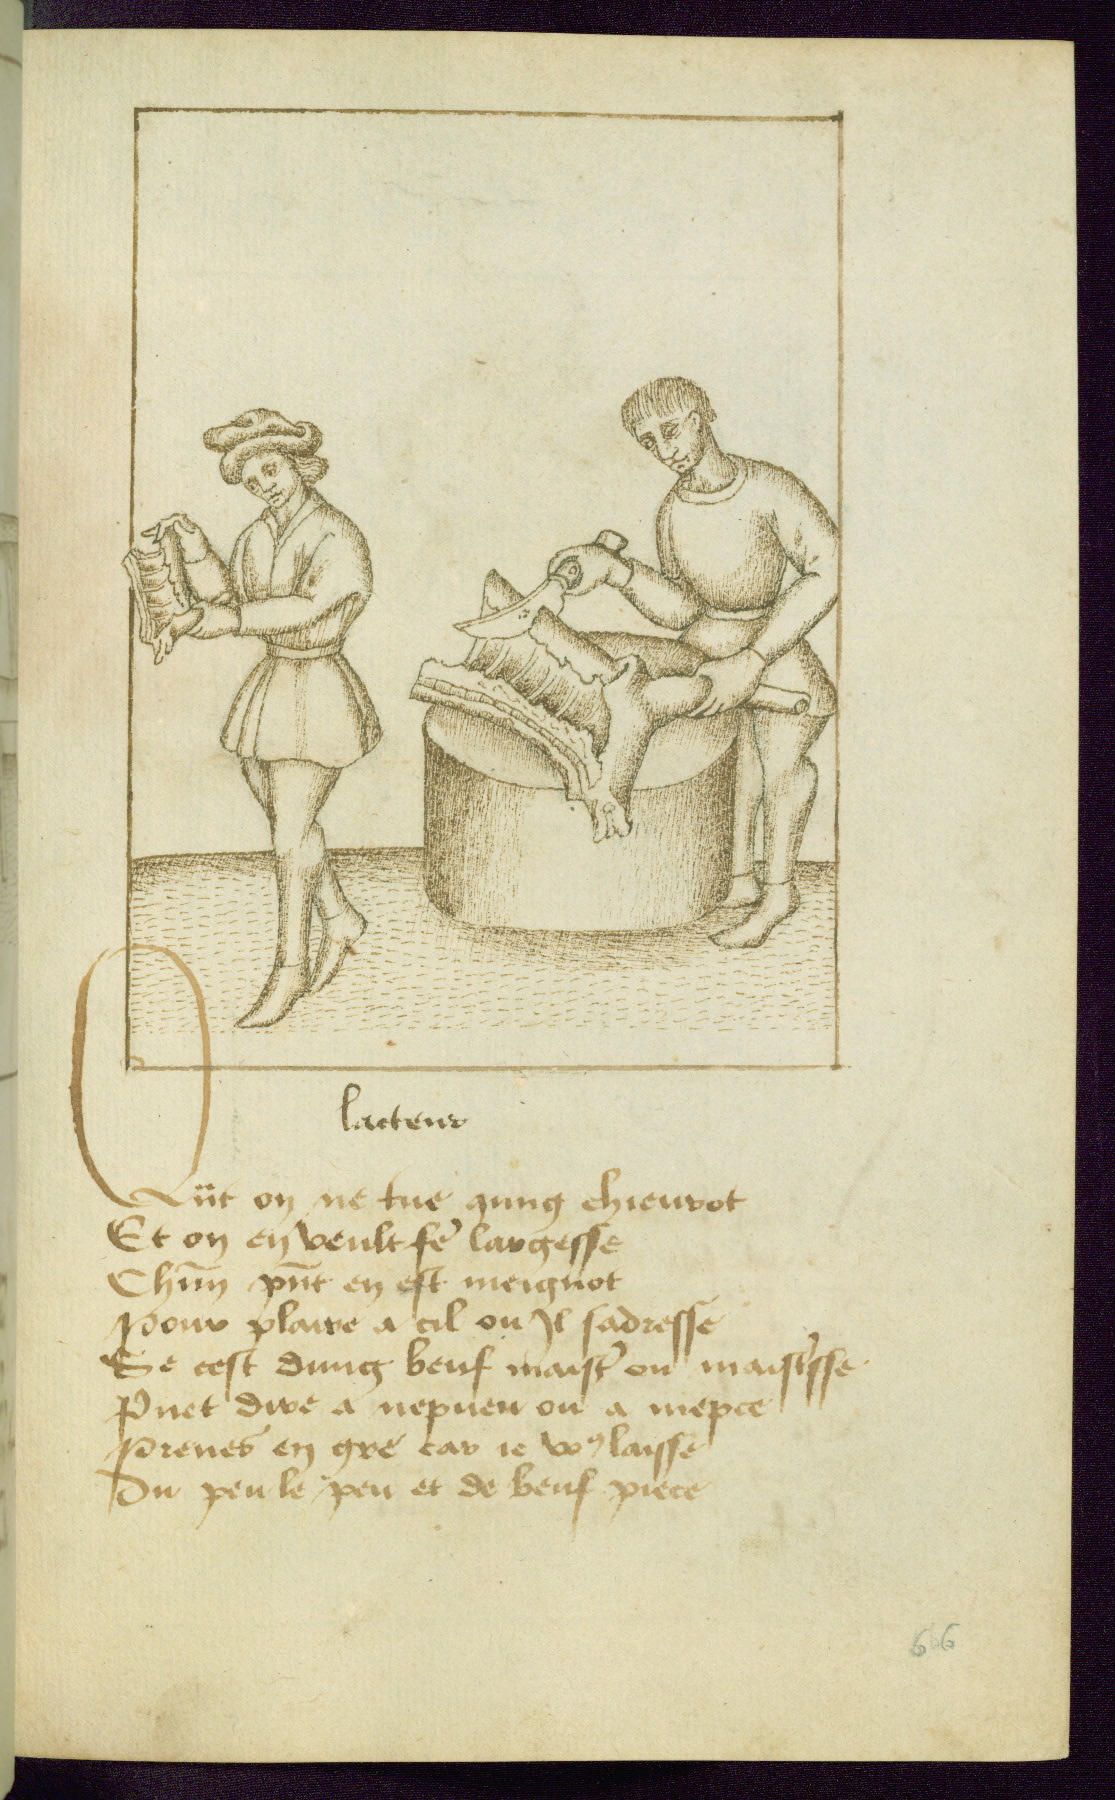 lacteur
Qũt on ne tue qung chieurot
Et on en veult fẽ largesse
Chũn pũt en est meignot
Pour plaire a cil ou Il sadresse
Se cest dung beuf maistẽ ou maistẽsse
Puet dire a nepueu ou a niepce
Prenes en gre car ie vꝰ laisse
Du peu le peu et de beuf piece
66